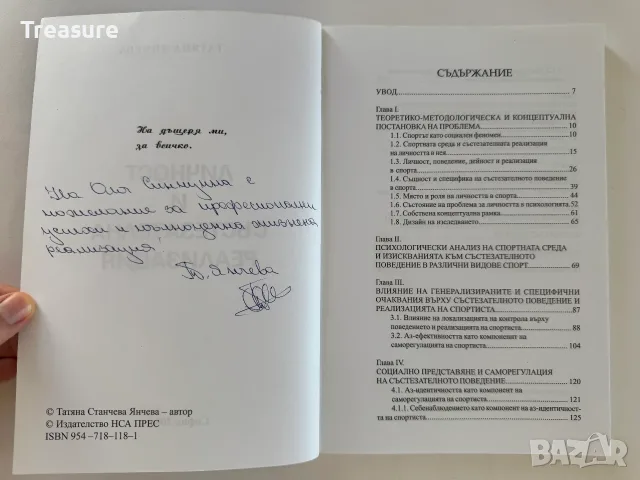 Treasure
На дъщеря ми,
за всичко.
На
с
пожелание за професионални
успехи и пълноценна жизнена
реализация!
Т. Янчева
© Татяна Станчева Янчева – автор
© Издателство НСА ПРЕС
ISBN 954 –718–118–1
СЪДЪРЖАНИЕ
УВОД 7
Глава I.
ТЕОРЕТИКО-МЕТОДОЛОГИЧЕСКА И КОНЦЕПТУАЛНА
ПОСТАНОВКА НА ПРОБЛЕМА 10
1.1. Спортът като социален феномен 10
1.2. Спортната среда и състезателната реализация
на личността в нея 15
1.3. Личност, поведение, дейност и реализация
в спорта 26
1.4. Същност и специфика на състезателното поведение
в спорта 39
1.5. Място и роля на личността в спорта 44
1.6. Състояние на проблема за личността в психологията 52
1.7. Собствена концептуална рамка 61
1.8. Дизайн на изследването 65
Глава II.
ПСИХОЛОГИЧЕСКИ АНАЛИЗ НА СПОРТНАТА СРЕДА
И ИЗИСКВАНИЯТА КЪМ СЪСТЕЗАТЕЛНОТО
ПОВЕДЕНИЕ В РАЗЛИЧНИ ВИДОВЕ СПОРТ 69
Глава III.
ВЛИЯНИЕ НА ГЕНЕРАЛИЗИРАНИТЕ И СПЕЦИФИЧНИ
ОЧАКВАНИЯ ВЪРХУ СЪСТЕЗАТЕЛНОТО ПОВЕДЕНИЕ И
РЕАЛИЗАЦИЯТА НА СПОРТИСТА 87
3.1. Влияние на локализацията на контрола върху
поведението и реализацията на спортиста 88
3.2. Аз-ефективността като компонент на
саморегулацията на спортиста 104
Глава IV.
СОЦИАЛНО ПРЕДСТАВЯНЕ И САМОРЕГУЛАЦИЯ
НА СЪСТЕЗАТЕЛНОТО ПОВЕДЕНИЕ 120
4.1. Аз-идентичността като компонент на
саморегулацията на спортиста 121
4.1.1. Себенаблюдението като компонент на аз-идентичност-
та на спортиста 125
bazar.bg